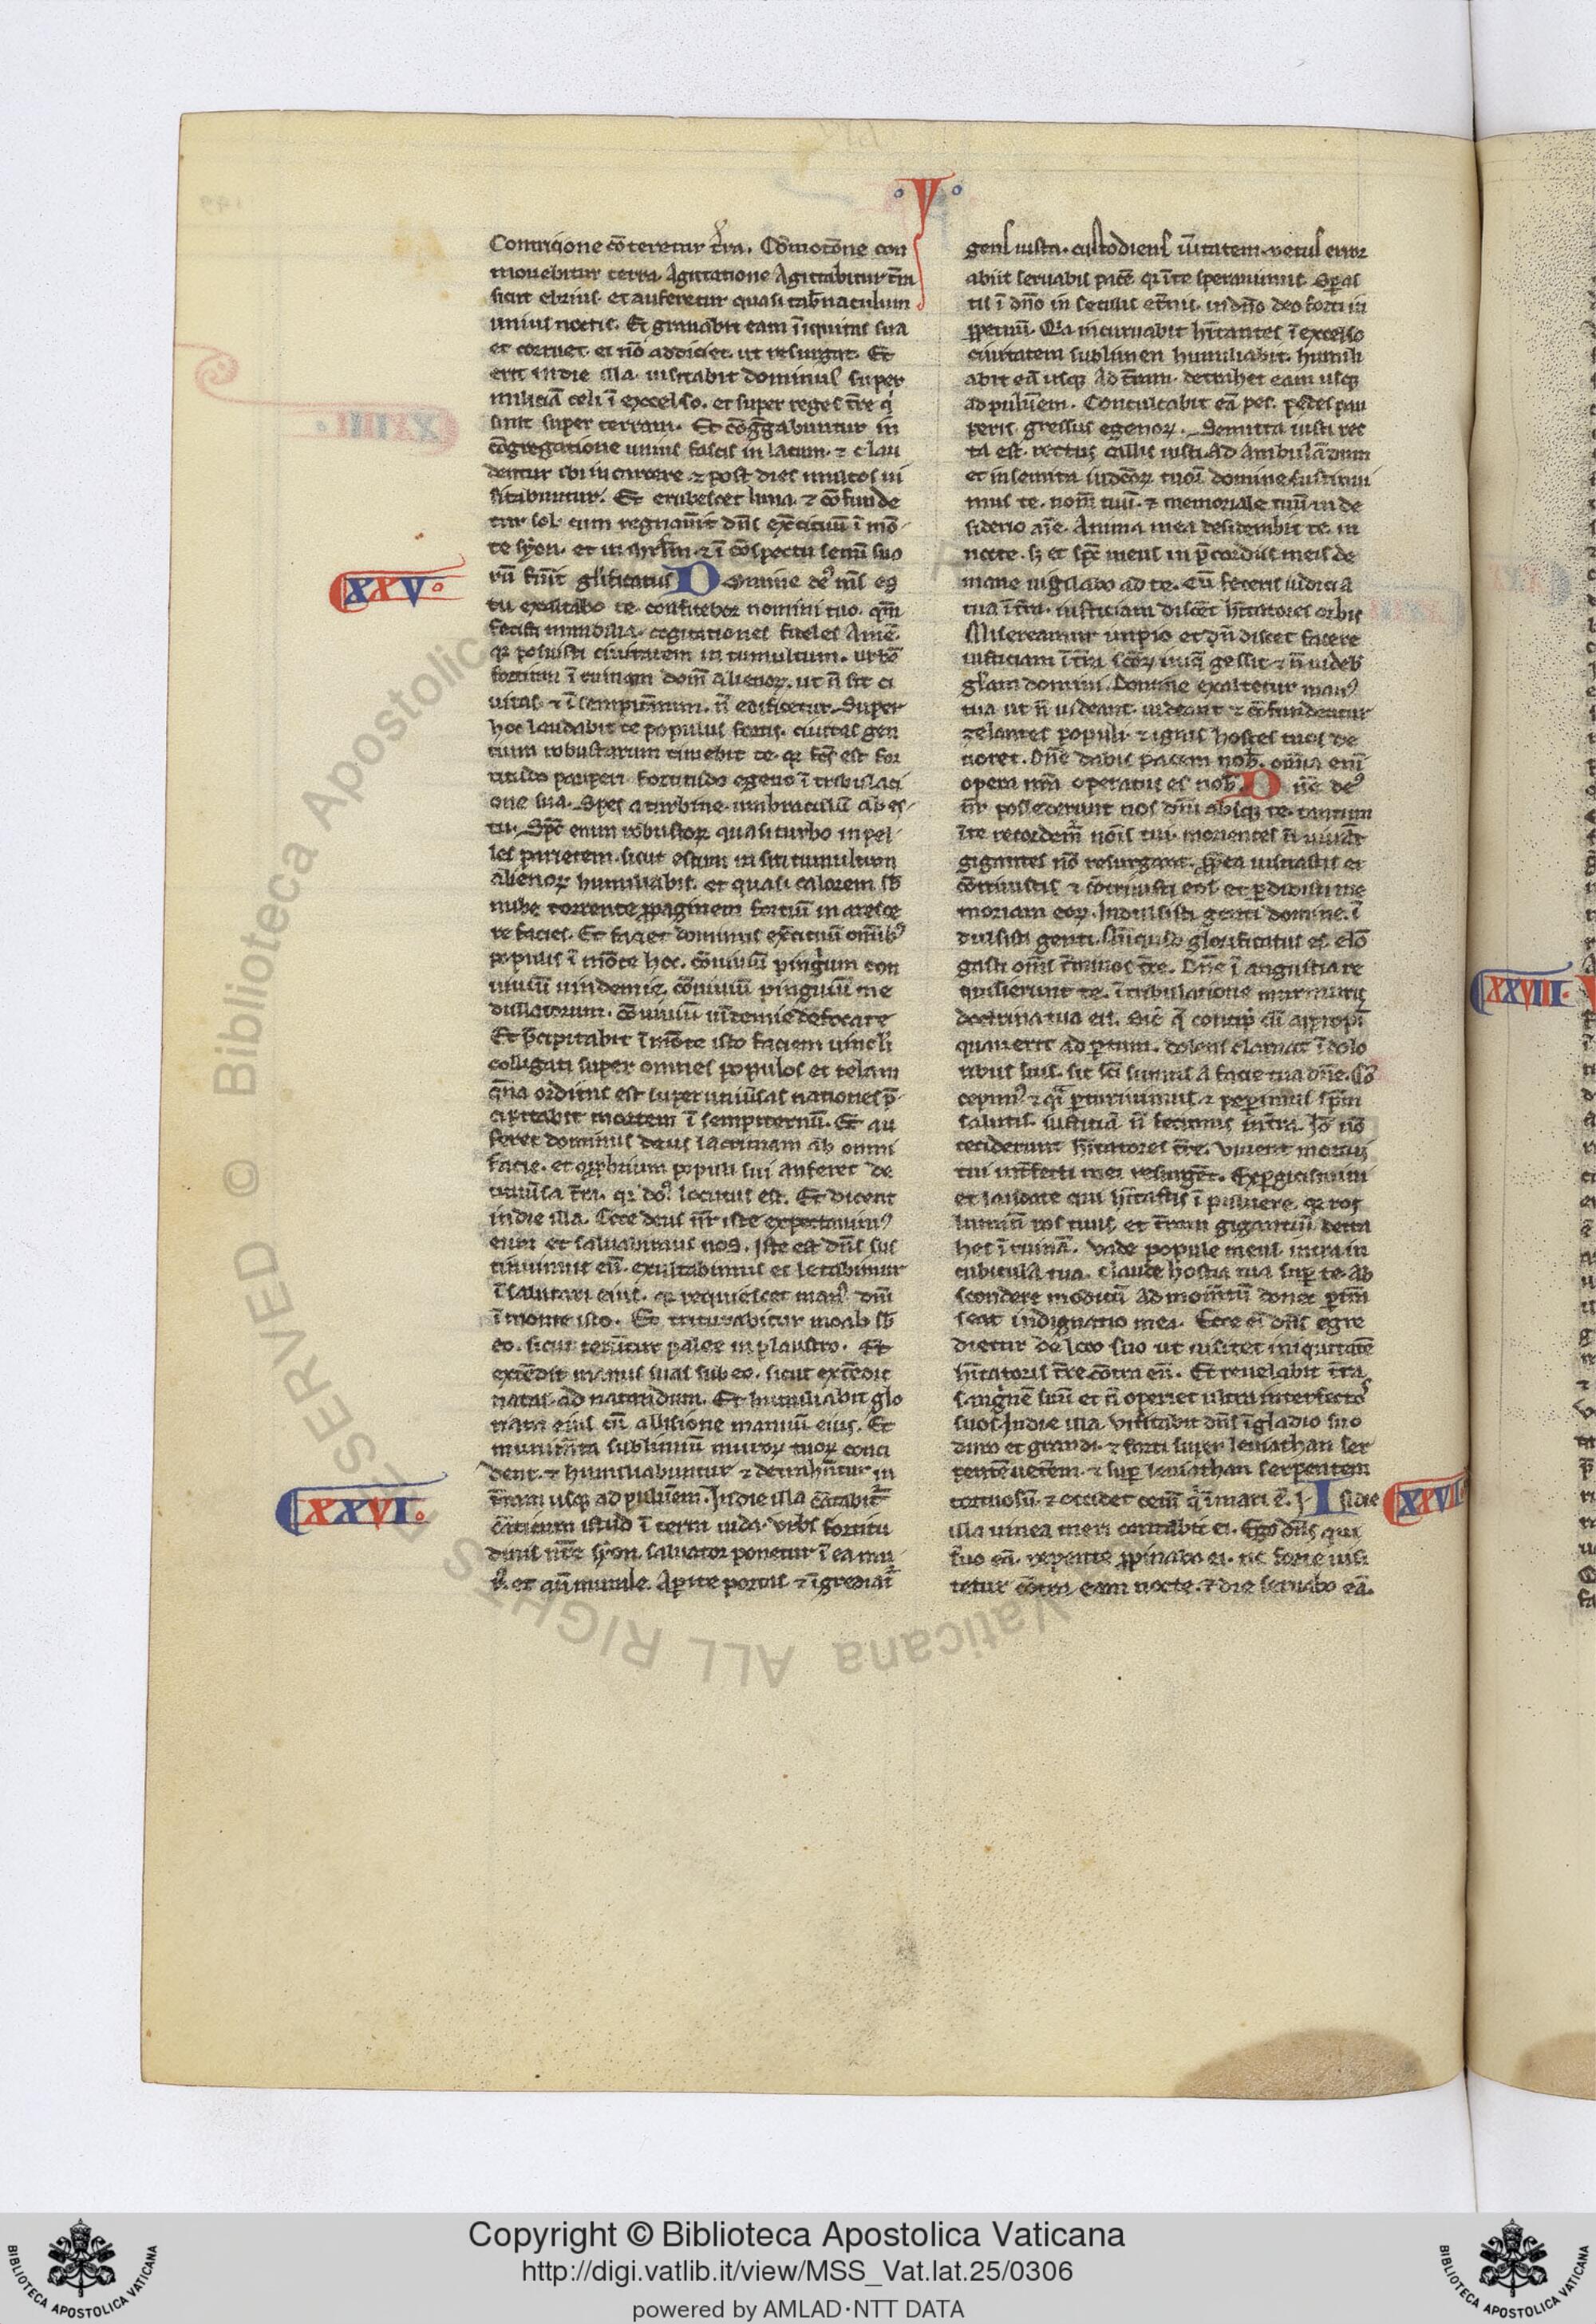 V
Contricione cōteretur t̄ra. Cōmotōne con
mouebitur terra. Agitatione Agitabitur t̄ra
sicut ebrius. et auferetur quasi tab̄naculum
unius noctis. Et grauabit eam īiquitas sua
et corruet. et nō addiciet. ut resurgat. Et
erit in die illa. uisitabit dominus super
miliciā celi ī excelso. et super reges t̄re q̇
sunt super terram. Et cōḡgabuntur in
cōgregatione unius fascis in lacum. ⁊ clau
dentur ibi in carcere. ⁊ post dies multos ui
sitabuntur. Et erubescet luna. ⁊ cōfunde
tur sol. cum regnau̅it dn̄s ex̄cituū ī mō
te syon. et in ihrl̄m. ⁊ ī cōspectu senū suo
rū fu̅it gl̄ificatus Domine deꝰ m̄s es
XXV
tu exaltabo te. confitebor nomini tuo. qm̄
fecisti mirabilia. cogitationes fideles Amē.
qꝛ posuisti ciuitatem in tumultum. urbē
fortium ī ruinam domū alienoꝝ. ut n̄ sit ci
uitas. ⁊ ī sempit̄num. n̄ edificetur. Super
hoc laudabit te populus fortis. ciuitas gen
tium robustarum timebit te. qꝛ fc̄s est for
titudo pauperi. fortitudo egeno ī tribulaci
one sua. Spes a turbine. umbraculū ab es
tu. Sp̄c enim robustoꝝ quasi turbo inpel
les parietem. sicut estum in siti tumultum
alienoꝝ humiliabis. et quasi calorem sb̄
nube torrente ꝓpaginem fortiū maresce
re facies. Et faciet dominus ex̄cituū om̄ibꝰ
populis ī mōte hoc. cōuiuiū pinguium con
uiuiū uindemie. cōuiuiū pinguiū me
dullatorum. cōuiuiū uīdemie defecate
Et p̄cipitabit ī mōte isto faciem uinculi
colligati super omnes populos et telam
q̄m orditus est super uniu̅sas nationes p̄
cipitabit mortem ī sempiternū. Et au
feret dominus deus lacrimam ab omni
facie. et opprobrium populi sui auferet de
uniu̅sa t̄ra. qꝛ doꝰ locutus est. Et dicent
in die illa. Ecce deus n̄r iste expectauimꝰ
eum et saluabimus nos. Iste est dn̄s sus
tinuimus eū. exultabimus et letabimur
ī salutari eius. qꝛ requiescet manꝰ dn̄i
ī monte isto. Et triturabitur moab sb̄
eo. sicut terūtur palee in plaustro. Et
extēdit manus suas sub eo. sicut extēdit
natas ad natandum. Et humiliabit glo
riam eius cū allisione manuū eius. Et
munim̄ta sublimiū muroꝝ tuoꝝ conci
dent. ⁊ humiliabuntur ⁊ detrahūtur in
XXVI
t̄ram usqꝫ ad pulu̅em. In die illa cātabit̄
cāticum istud ī terra iuda. Urbs fortitu
dinis nr̄e syon. saluator ponetur ī ea mu
rꝰ. et an̄murale. Apite portas ⁊ īgrediat̄
gens iusta. custodiens u̅itatem. uetus error
abiit seruabis pacē qꝛ īte sperauimus. Spas
tis ī dn̄o in seculis et̄nis. in dn̄o deo forti in
ꝑpetuū. Qꝛ incuruabit hītantes ī excelso
ciuitatem sublimen humiliabit. humili
abit eā usqꝫ ad t̄ram. detrahet eam usqꝫ
ad pulu̅em. Conculcabit eā pes. pedes pau
peris. gressus egenoꝝ. Semita iusti rec
ta est. rectus callis iusti. Ad ambulādum
et in semita iudicioꝝ tuoꝝ domine sustinui
mus te. nom̄ tuū. ⁊ memoriale tuū in de
siderio aīe. Anima mea desiderabit te. in
nocte. sꝫ et sp̄c meus in p̄cordiis meis de
mane uigilabo ad te. Cū feceris iudicia
tua ī t̄ra. iusticiam discēt hītatores orbis
Misereamur impio et n̄ discet facere
iusticiam ī t̄ra sc̄oꝝ iniq̄ gessit ⁊ n̄ uideb̄
gl̄am domini. Domine exaltetur manꝰ
tua ut n̄ uideant. uideant ⁊ cōfundentur
zelantes populi. ⁊ ignis hostes tuos de
uoret. Dn̄e dabis pacem nob̄. om̄ia enī
opera nr̄a operatus es nob̄. Dn̄e deꝰ
n̄r possederunt nos dn̄i absqꝫ te. tantum
īte recordem̄ nōis tui. morientes n̄ uiuāt
gigantes nō resurgant. ꝓp̄ea uisitasti et
cōtriuistis ⁊ cōtriuisti eos. et ꝑdidisti me
moriam eoꝝ. Indulsisti genti domine. ī
dulsisti genti. Nūquid glorificatus es. elō
gasti om̄s t̄minos t̄re. Dn̄e ī angustia re
quisierunt te. ī tribulatione murmuris
doctrina tua eis. Sic̄ q̄ concip̄ cū appropī
quauerit ad partum. dolens clamat ī dolo
ribus suis. sic fc̄i sumus a facie tua dn̄e. Cō
cepimꝰ ⁊ q̄i parturiuimus. ⁊ peperimus sp̄m
salutis. iusticiā n̄ fecimus in t̄ra. Iō nō
ceciderunt hītatores t̄re. Viuent mortui
tui int̄fecti mei resurgēt. Expgiscimini
et laudate qui hītatis ī puluere. qꝛ ros
luminū ros tuus. et t̄ram gigantiū detra
hes ī ruinā. Vade popule meus. intra in
cubicula tua. claude hostia tua sup te. Ab
scondere modicū Ad mom̄tū donec ptrā
seat indignatio mea. Ecce eī dn̄s egre
dietur de loco suo ut uisitet iniquitatē
hītatoris t̄re cōtra eū. Et reuelabit t̄ra
sanguinē suū et n̄ operiet ultra interfectoꝰ
suos. In die illa. Visitabit dn̄s ī gladio suo
duro et grandi. ⁊ forti super leuiathan ser
pentē uectem. ⁊ sup leuiathan serpentem
tortuosū. ⁊ occidet cetū q̇ ī mari ē. In die
XXVII
illa uinea meri cantabit ei. Ego dn̄s qui
s̄uo eā. repente ꝓpinabo ei. ne forte uisi
tetur cōtra eam nocte. ⁊ die seruabo eā.
XXVIII
Copyright © Biblioteca Apostolica Vaticana
http://digi.vatlib.it/view/MSS_Vat.lat.25/0306
powered by AMLAD·NTT DATA
BIBLIOTECA APOSTOLICA VATICANA
BIBLIOTECA APOSTOLICA VATICANA
Biblioteca Apostolica Vaticana ALL RIGHTS RESERVED ©